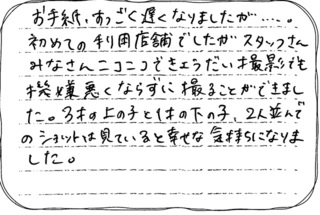 お手紙、すっごく遅くなりましたが……。
初めての利用店舗でしたがスタッフさん
みなさんニコニコできょうだい撮影でも
機嫌悪くならずに撮ることができまし
た。3才の上の子と1才の下の子、2人並んで
のショットは見ていると幸せな気持ちになりま
した。